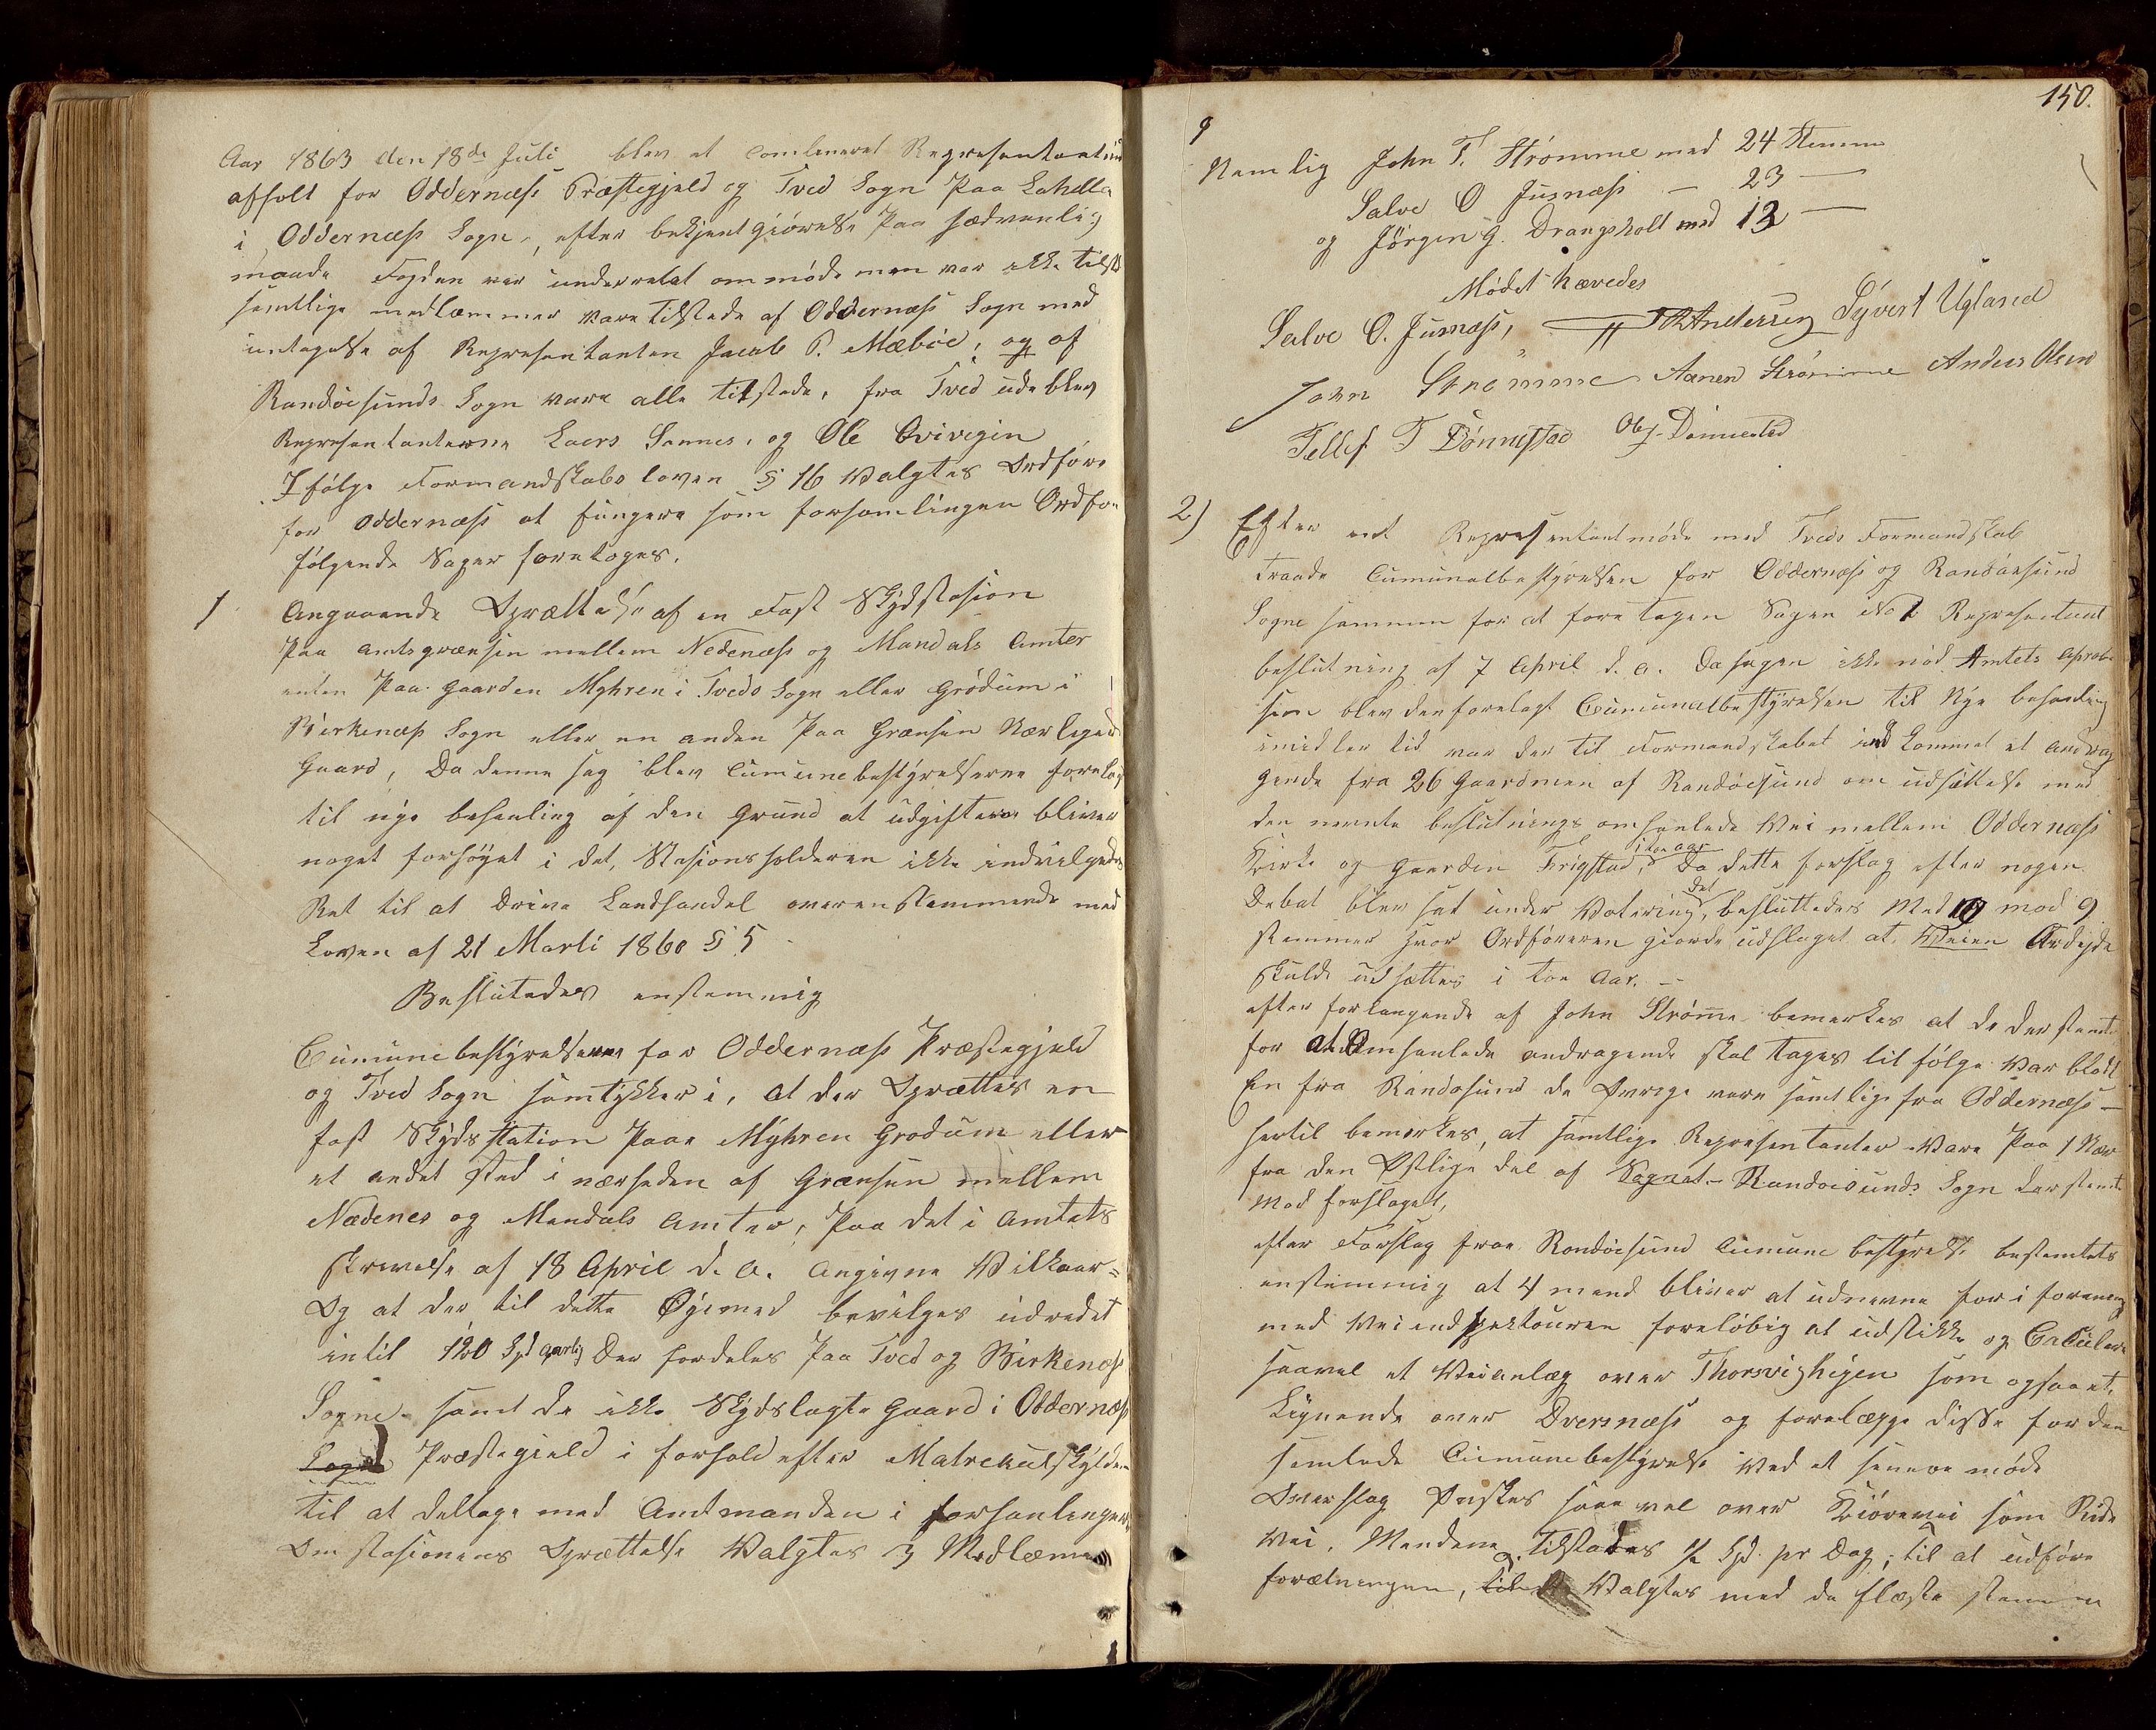 Aar 1863 den 18de Juli blev et combineret Representantmø
afholt for Oddernæss Præstegjeld og Tved Sogn Paa Lahella
i Oddernæss Sogn, efter bekjentgiörelse Paa sædvanlig
maade Fogden var underrettet om möde men var ikke tilsted
samtlige medlemmer vare tilstede af Oddernæss Sogn med
untagelse af Representanten Jacob P. Mæbøe, og af
Randöesunds Sogn vare alle tilstede, fra Tved udeblev
Representanterne Laers Sannes, og Ole Qvivigen
Ifölge Formandskabs loven § 16 Valgtes Ordföre
for Oddernæss at fungere som forsamlingen Ordför
fölgende Sager foretoges.
1 Angaaende Oprættelse af en Fast Skydstasion
Paa Amtsgrænsen mellem Nedenæss og Mandals Amter
enten Paa Gaarden Myhren i Tveds Sogn eller Grödum i
Birkenæss Sogn eller en anden Paa Grænsen Nærliggend
Gaard, Da denne sag blev Cumunebestyrelserne forelag
til nye behanling af den Grund at udgifterne bliver
noget forhöyet i det, Stasionsholderen ikke indvilgedes
Ret til at Drive Landhandel overenstemmende med
Loven af 21 Marti 1860 § 5
Beslutedes enstemmig
Cumunebestyrelserne for Oddernæss Præstegjeld
og Tved Sogn samtykker i, at der Oprættes en
fast Skydsstation Paa Myhren Grodum eller
et andet sted i nærheden af Grænsen mellem
Nædenes og Mandals Amter, Paa det i Amtets
skrivelse af 18 April d. A. Angivne Vilkaar=
Og at der til dette Öyemed bevilges udredet
intil 120 Spd aarlig Der fordeles Paa Tved og Birkenæss
Sogne samt de ikke Skydslagte Gaard i Oddernæss
Sogn Præstegield i forhold efter Matrekulskylden
til at deltage med Amtmanden i forhanlingen
Om stasionens Oprættelse Valgtes 3 Medlemer
150.
Nemlig John T. Strömme med 24 Stemme
Salve O Jusnæss — 23 —
og Jörgen G. Drangsholt med 13 —
Mödet hævedes
Salve O. Jusnæss, Andersen Syvert Ugland
John Strömme Aanen Strömme Anders Olsen
Tellef T Dönnestad Ole J. Dönnestad
2) Efter endt Representantmöde med Tveds Formandskab
traade Cumunalbestyrelsen for Oddernæss og Randöesund
Sogne sammen for at foretagen Sagen No 2 Representant
beslutning af 7 April d. a. Da sagen ikke nöd Amtets Aproba
sion blev den forelagt Cumunalbestyrelsen til Nye behanling
imidlertid var der til Formandskabet indkommet et Andrag
gende fra 26 Gaardmen af Randöesund om udsættelse med
den nevnte beslutnings omhanlede Vei mellem Oddernæss
Kirke og Gaarden Frigstad, i toe aar Da dette forslag efter nogen
Debat blev sat under Votering, det besluttedes Med 10 mod 9
stemmer hvor Ordföreren giorde udslaget at Veien Arbejde
skulde udsættes i toe Aar. —
efter forlangende af John Strömme bemerkes at de der stemte
for at Omhanlede andragende skal tages til fölge var blodt
En fra Randösund de Övrige vare samtlige fra Oddernæss —
hertil bemerkes, at samtlige Representanter Vare Paa 1 Nær
fra den Östlige del af Sognet — Randöesunds Sogn der stemte
mod forslaget,
efter Forslag fraa Randöesund Cumune bestyrelse bestemtes
enstemmig at 4 mend bliver at udnevne for i forening
med Veiendspektouren forelöbig at udstikke og Calculere
saavel et Veianlæg over Thorsvighejen som ogsaa et
Lignende over Dversnæss og forelægge disse for den
samlede Cumunebestyrelse ved et senere möde
Overslag Önskes saavel over Kiörevei som Ride
Vei. Mendene tilstaaes 1/2 Spd. pr Dag; til at udföre
forætningen, Valgtes med de flæste stemmer